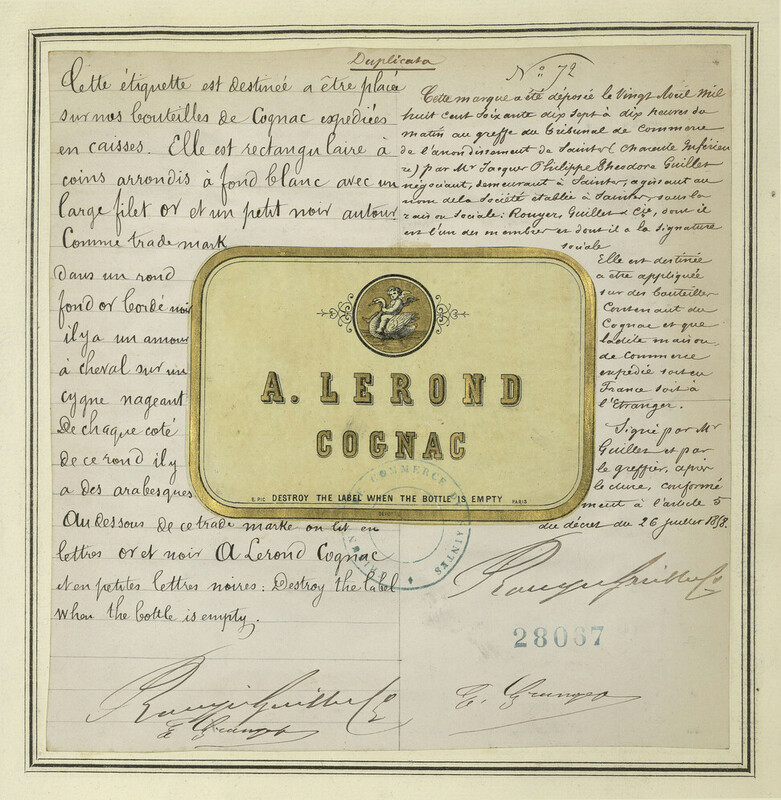 Duplicata
Cette étiquette est destinée a être placée
sur nos bouteilles de Cognac expediées
en caisses. Elle est rectangulaire à
coins arrondis à fond blanc avec un
large filet or et un petit noir autour
Comme trade mark
dans un rond
fond or bordé noir
il y a un amour
à cheval sur un
cygne nageant
De chaque coté
de ce rond il y
a des arabesques
Au dessous de ce trade marke on lit en
lettres or et noir A Lerond Cognac
et en petites lettres noires: Destroy the label
when the bottle is empty.
Rouyer Guillet & Cie
E. Granger
No. 72
Cette marque a été déposée le Vingt Avril Mil
huit cent soixante dix sept à dix heures du
matin au greffe du Tribunal de Commerce
de l'arrondissement de Saintes (Charente Inférieu
re) par Mr Jacques Philippe Théodore Guillet
négociant, demeurant à Saintes, agissant au
nom de la Société établie à Saintes, sous la
raison sociale: Rouyer, Guillet & Cie, dont il
est l'un des membres et dont il a la signature
sociale
Elle est destinée
a être appliquée
sur des bouteilles
Contenant du
Cognac et que
ladite maison
de Commerce
expédie soit en
France soit à
l'Etranger.
Signé par Mr
Guillet et par
le greffier, après
lecture, conformé
ment à l'article 5
du décret du 26 juillet 1858.
Rouyer Guillet & Cie
28067
E. Granger
A. LEROND
COGNAC
E. PIC DESTROY THE LABEL WHEN THE BOTTLE IS EMPTY PARIS
COMMERCE
SAINTES